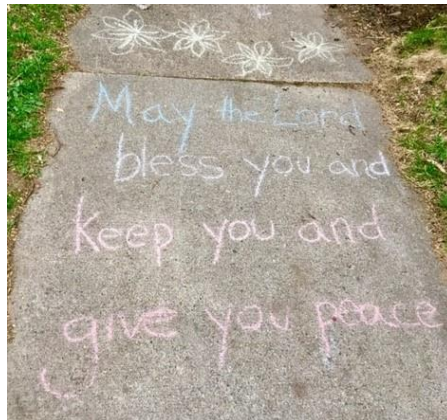 May the Lord
bless you and
keep you and
give you peace